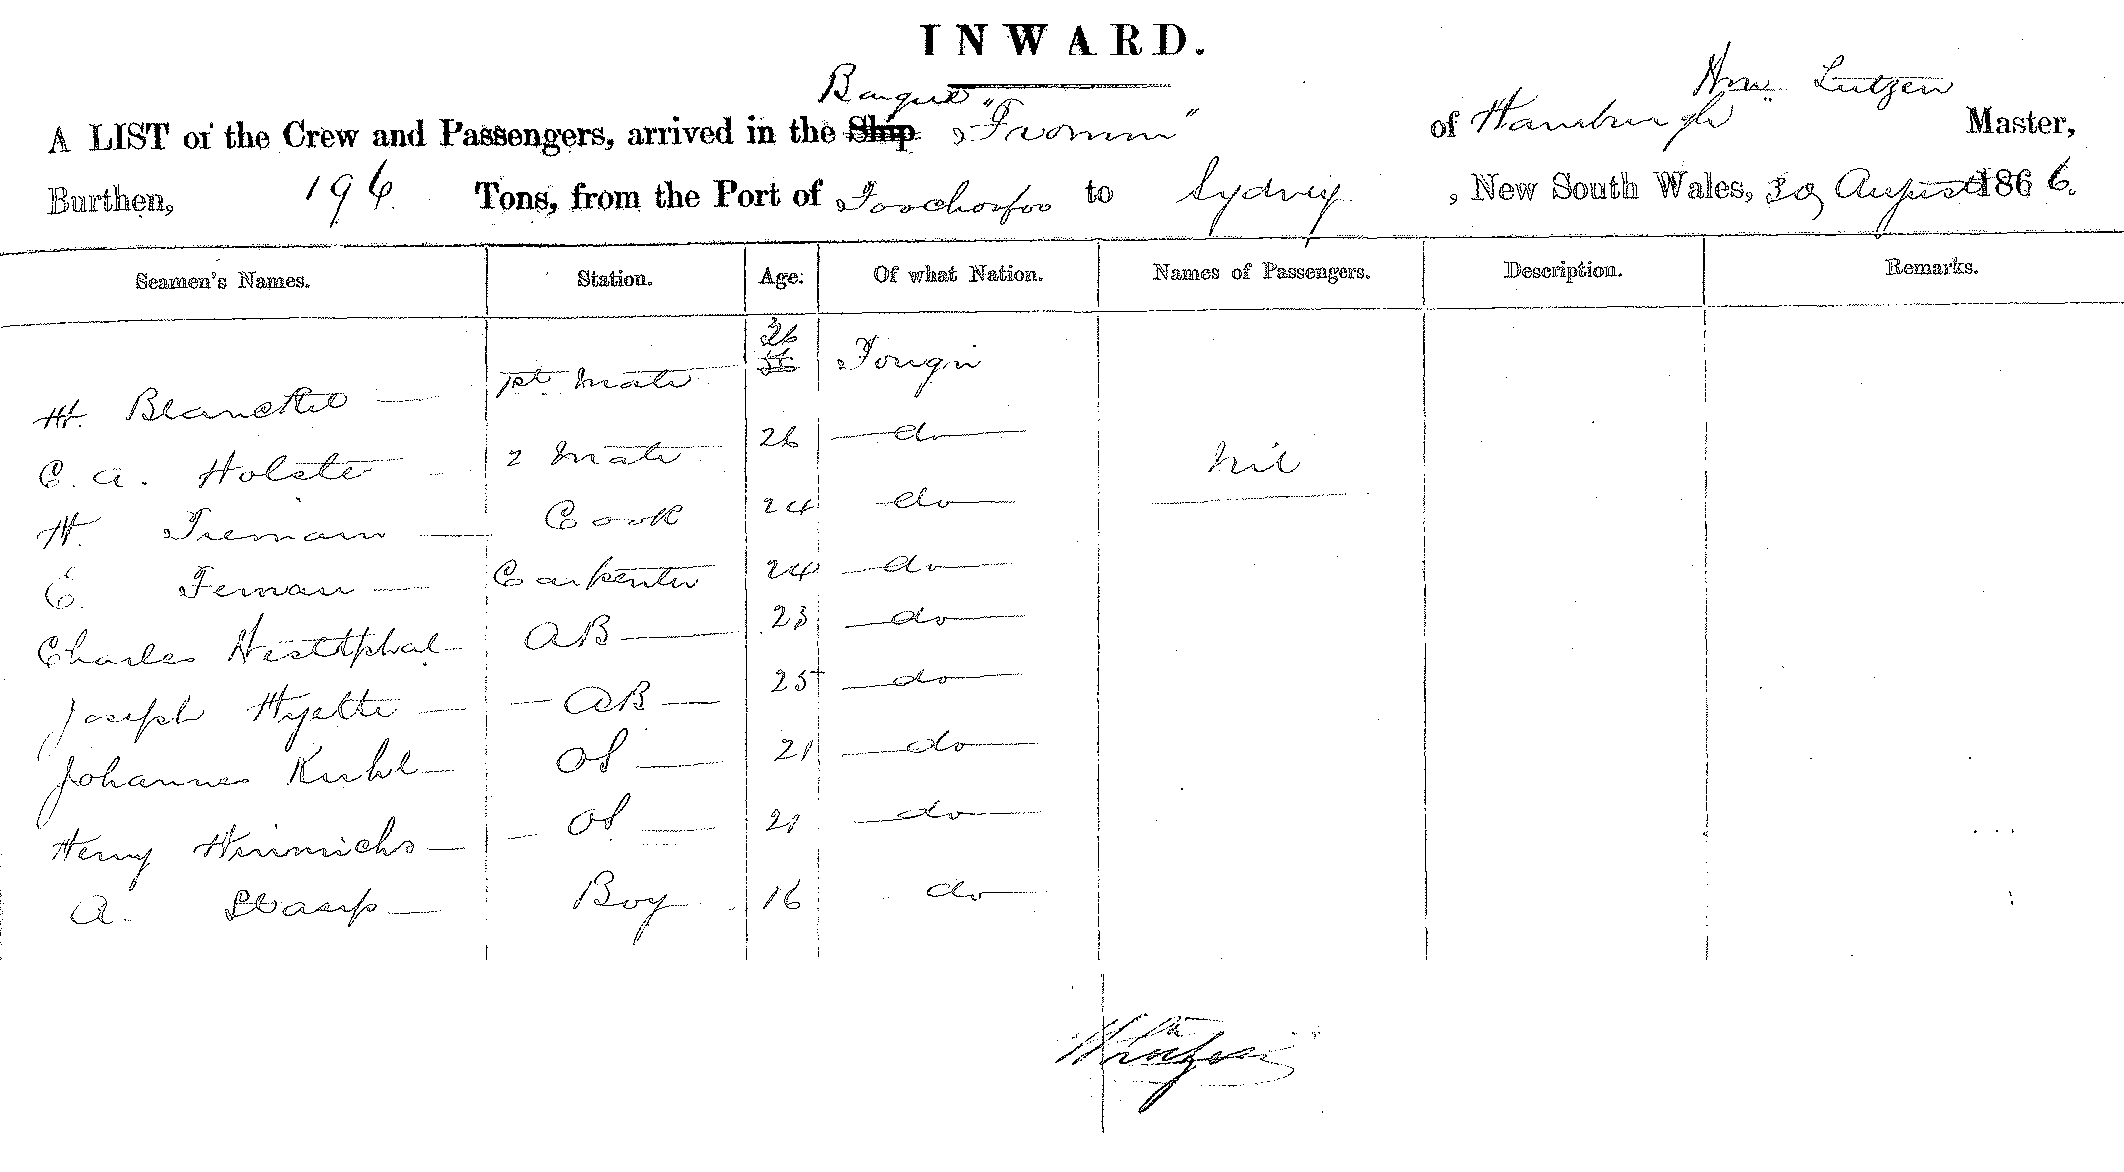 INWARD.
Barque
Hrm. Lutzen
A LIST of the Crew and Passengers, arrived in the Ship "Fromm" of Hamburgh Master,
Burthen, 196 Tons, from the Port of Foochowfoo to Sydney, New South Wales, 30 August 1866.
Seamen's Names. Station. Age. Of what Nation. Names of Passengers. Description. Remarks.
26
H. 1st Mate
C. A. Holste 2 Mate 26 do Nil
H. Cook 24 do
C. Carpenter 24 do
Charles AB 23 do
Joseph AB 25 do
Johannes Kuhl OS 21 do
Henry Hinrichs OS 21 do
A. Boy 16 do